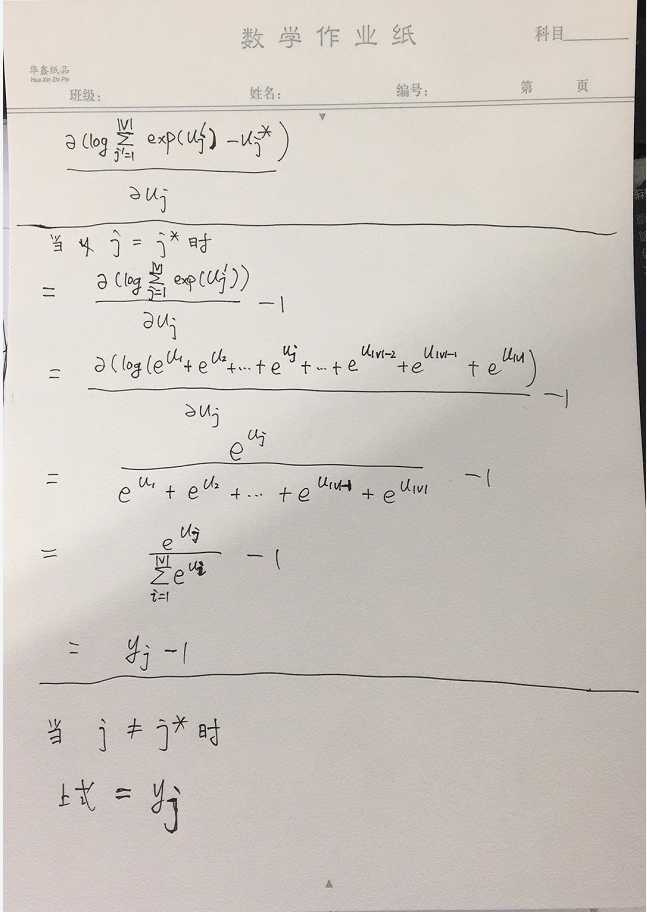 数学作业纸
科目
华鑫纸品
Hua Xin Zhi Pin
班级: 姓名: 编号: 第 页
∂(log ∑_{j'=1}^{|V|} exp(u_j') - u_j*)
∂u_j
当 j = j* 时
= ∂(log ∑_{j=1}^{|V|} exp(u_j')) / ∂u_j - 1
= ∂(log(e^{u_1} + e^{u_2} + ... + e^{u_j} + ... + e^{u_{|V|-2}} + e^{u_{|V|-1}} + e^{u_{|V|}}) / ∂u_j - 1
= e^{u_j} / e^{u_1} + e^{u_2} + ... + e^{u_{|V|-1}} + e^{u_{|V|}} - 1
= e^{u_j} / ∑_{i=1}^{|V|} e^{u_i} - 1
= y_j - 1
当 j ≠ j* 时
上式 = y_j